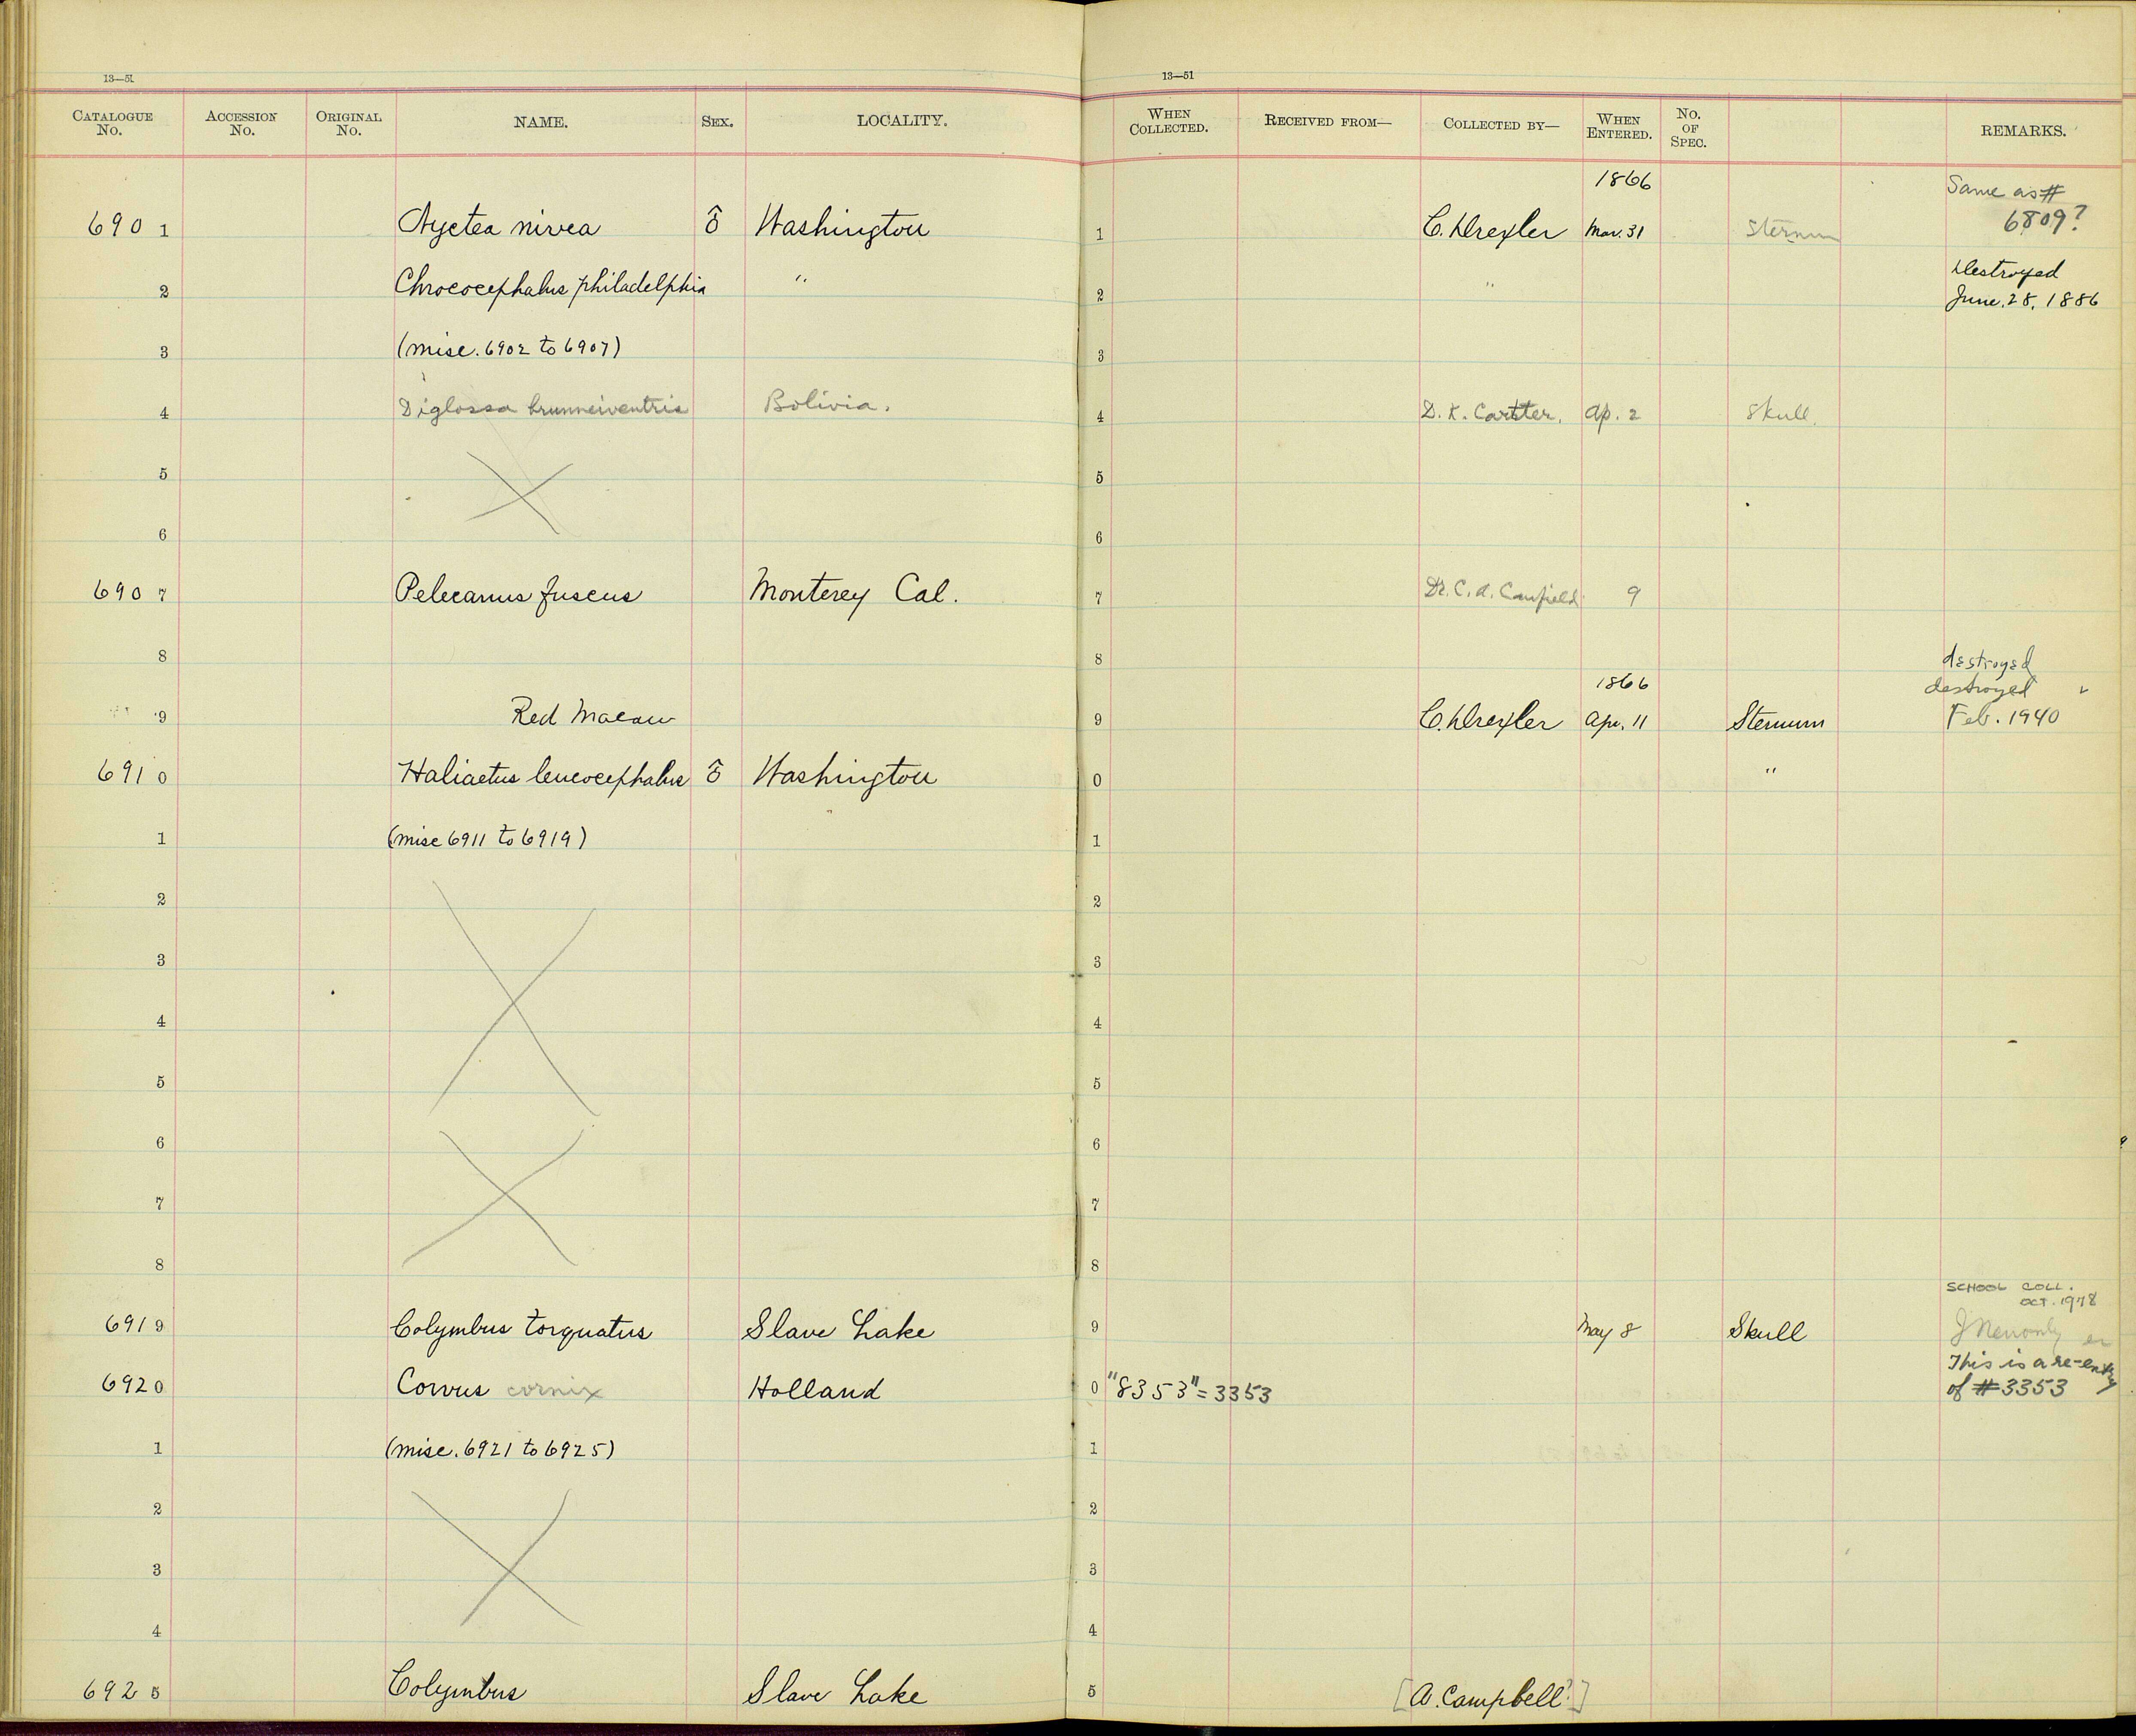 13—51
13—51
CATALOGUE No. ACCESSION No. ORIGINAL No. NAME. SEX. LOCALITY. WHEN COLLECTED. RECEIVED FROM— COLLECTED BY— WHEN ENTERED. No. OF SPEC. REMARKS.
1866 Same as #
690 1 Nyctea nivea ♂ Washington 1 C. Drexler Mar. 31 Sternum 6809?
Destroyed
2 Chroocephalus philadelphia " 2 " June. 28. 1886
3 (misc. 6902 to 6907) 3
4 Diglossa brunneiventris Bolivia. 4 D. K. Cartter. Ap. 2 Skull.
5 5
6 6
690 7 Pelecanus fuscus Monterey Cal. 7 Dr. C. A. Canfield 9
8 8 destroyed
1866 destroyed
9 Red Macaw 9 C. Drexler Apr. 11 Sternum Feb. 1940
691 0 Haliaetus leucocephalus ♂ Washington 0 "
1 (misc 6911 to 6919) 1
2 2
3 3
4 4
5 5
6 6
7 7
8 8
SCHOOL COLL.
OCT. 1978
691 9 Colymbus torquatus Slave Lake 9 May 8 Skull
This is a re-entry
692 0 Corvus cornix Holland 0 "8353" = 3353 of # 3353
1 (misc. 6921 to 6925) 1
2 2
3 3
4 4
692 5 Colymbus Slave Lake 5 [A. Campbell?]